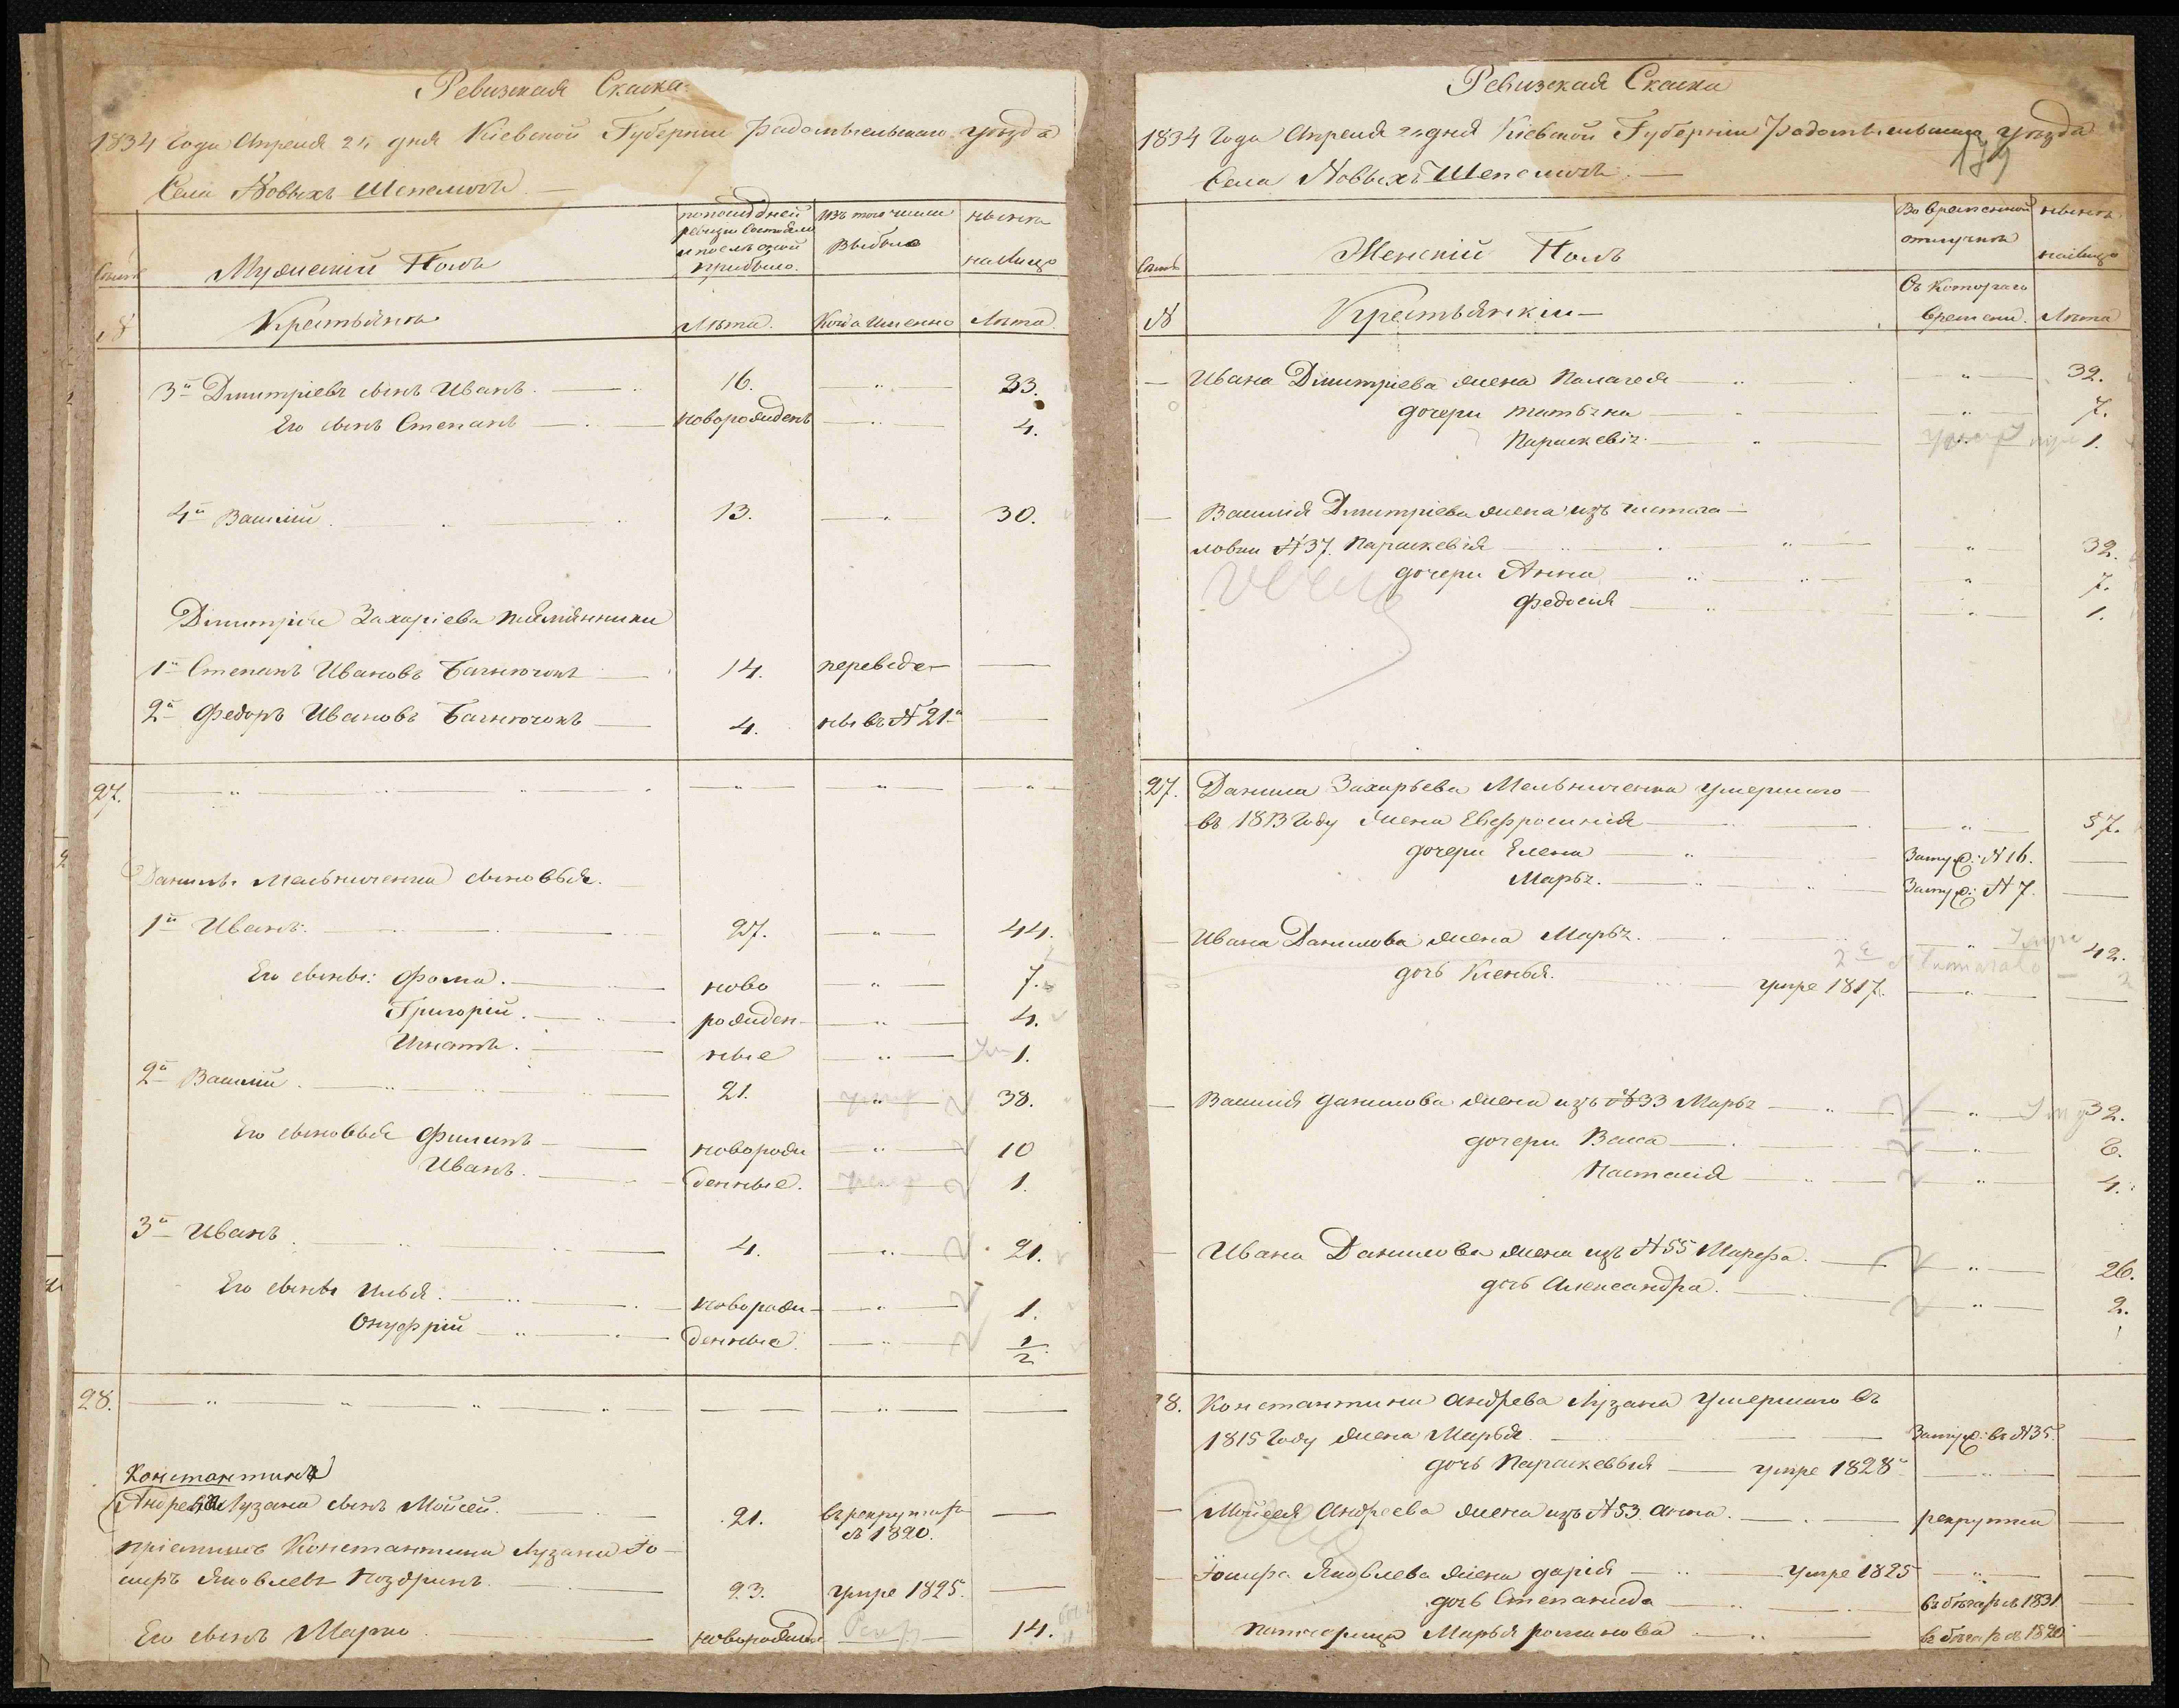 Ревизская Скаска
1834 Года Апреля 25 дня Кіевской Губерніи Радомысльскаго уѣзда
Села Новыхъ Шепеличь
по последней изъ того числа нынѣ
ревизіи состояло выбыло на лицо
и после оной
прибыло.
Мужескій Полъ
№ Крестьянѣ Лѣта. Когда именно Лѣта
3й Дмитріевъ сынъ Иванъ. 16. 33.
Его сынъ Степанъ новорожденъ 4.
4й Василій 13. 30.
Дмитрія Захаріева племянники
1й Степанъ Ивановъ 14. переведе-
2й Федоръ Ивановъ 4. ны въ № 21й
27.
Данила Мельниченка сыновья.
1й Иванъ. 27. 44.
Его сыны: Фома. ново 7.
Григорій. рожден- 4.
Игнатъ. ные 1.
2й Василій. 21. 38.
Его сыновья Филипъ новорож 10
Иванъ. денные. 1.
3й Иванъ 4. 21.
Его сыны Илья. новорож- 1.
Онуфрій денные. 1/2
28.
Константина
Андреева Лузана сынъ Мойсей. 21. въ рекрутахъ
съ 1820.
пріемышъ Константина Лузана Іо-
сифъ Яковлевъ 23. умре 1825.
Его сынъ Марко новорожденъ 14.
Ревизская Скаска
1834 Года Апреля 25 дня Кіевской Губерніи Радомысльскаго уѣзда
179
Села Новыхъ Шепеличь
Во временной нынѣ
отлучкѣ на лицо
Женскій Полъ
Съ котораго
№ Крестьянки времени. Лѣта
Ивана Дмитріева жена Палагея 32.
дочери Татьяна 7.
Параскевія 1.
Василія Дмитріева жена изъ Чистога-
ловки №37. Параскевія 32.
дочери Анна 7.
Федосия 1.
27. Данила Захарьева Мельниченка умершаго
въ 1813 Году жена Евфросинія 57.
дочери Елена Замуж: № 16.
Марья. Замуж: № 7.
Ивана Данилова жена Марья. 42.
дочь Ксенья. умре 1817.
Василія Данилова жена изъ №33 Марья 32.
дочери Васса 6.
Настасия 4.
Ивана Данилова жена изъ №55 Марфа. 26.
дочь Александра. 2.
28. Константина Андрева Лузана умершаго въ
1815 Году жена Марья. Замуж: въ №35.
дочь Параскевья умре 1828
Мойсея Андреева жена изъ №53. Анна. рекрутка
Іосифа Яковлева жена Дарія умре 1825
дочь Степанида въ бѣгахъ съ 1831
Марья Романова въ бѣгахъ съ 1820